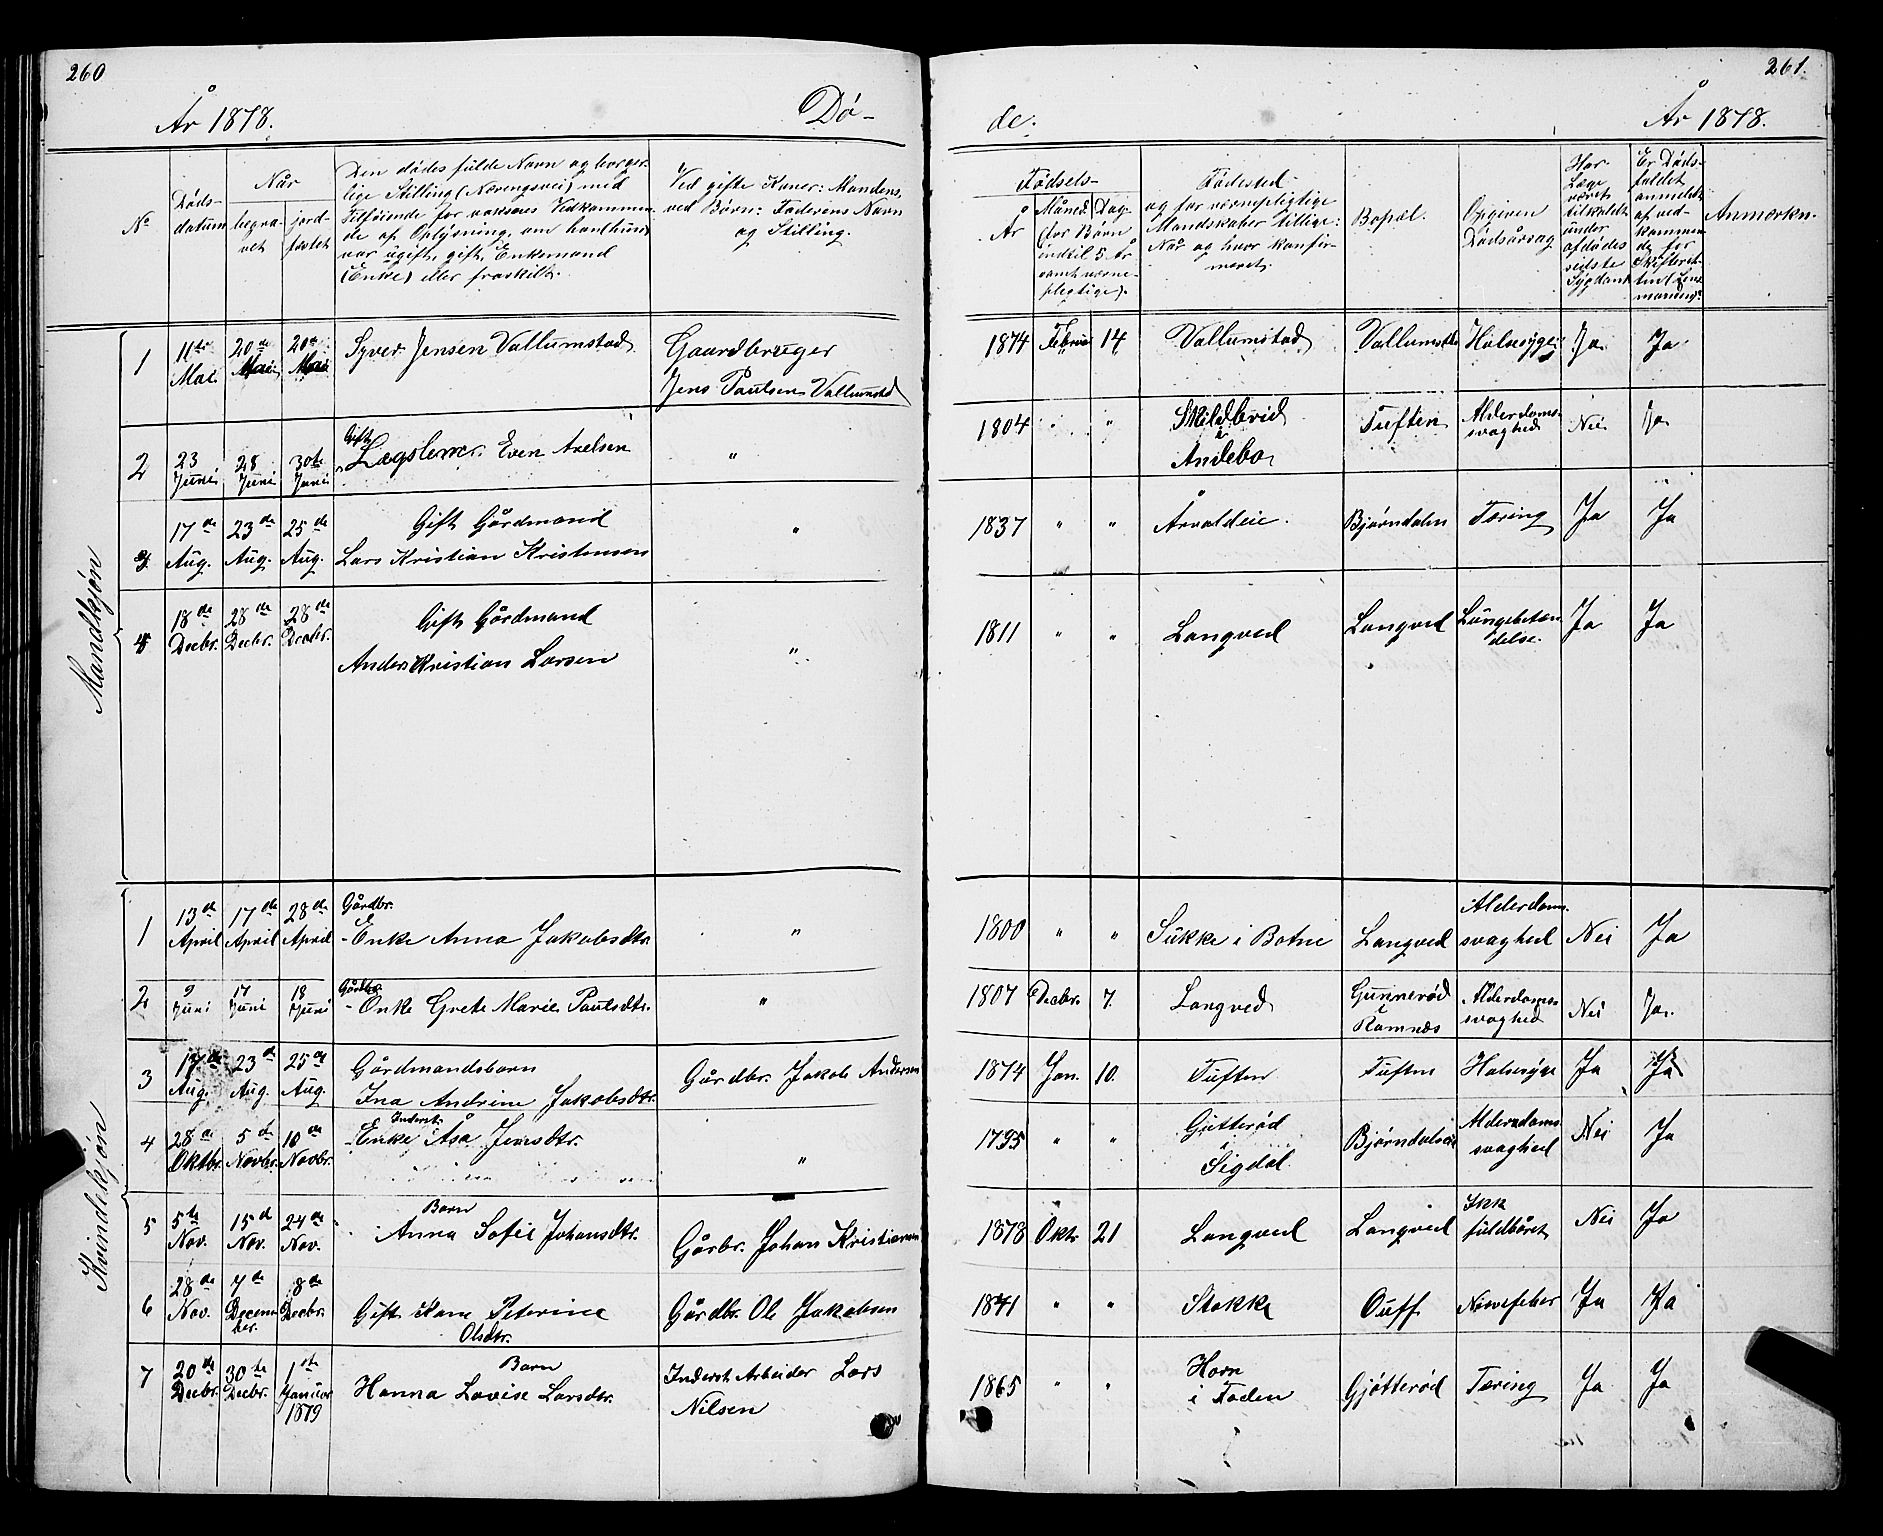 260
År 1878.
Dø-
No
Døds-
datum
Når
begra-
vet
jord-
fæstet
Den dødes fulde Navn og borger-
lige Stilling (Næringsvei) med
Tilføiende for voksnes Vedkommen-
de af Oplysning, om han(hun)
var ugift, gift, Enkemand
(Enke) eller fraskilt.
Ved gifte Koner: Mandens,
ved Børn: Faderens Navn
og Stilling.
Mandkjøn
1
11te Mai
20de Mai
20de Mai
Syver Jensen Vallumstad
Gaardbruger
Jens Paulsen Vallumstad
2
23 Juni
28 Juni
30te Juni
Gift
Lægslem. Even Axelsen
"
3
17de Aug.
23de Aug.
25de Aug.
Gift Gårdmand
Lars Kristian Kristensen
"
4
18de Decbr.
28de Decbr.
28de Decbr.
Gift Gårdmand
Anders Kristian Larsen
"
Kvindekjøn
1
13d April
17de April
28de April
Gårdbr.
- Enke Anna Jakobsdtr.
"
2
9 Juni
17 Juni
18 Juni
Gårdbr.
- Enke Grete Marie Paulsdtr.
"
3
17de Aug.
23d Aug.
25de Aug.
Gårdmandsbarn
Ina Andrine Jakobsdtr.
Gårdbr. Jakob Andersen
4
28de Oktbr.
5te Novbr.
10de Novbr.
Inderst.
Enke Åsa Jensdtr.
"
5
5te Nov.
15d Nov.
24de Nov.
Barn
Anna Sofie Johansdtr.
Gårbr. Johan Kristiansen
6
28de Nov.
7de Decem-
ber.
8de Decbr.
Gift Kone Peterine
Olsdtr.
Gårdbr. Ole Jakobsen
7
20de Decbr.
30te Decbr.
1ste Januar
1879
Barn
Hanna Lovise Larsdtr.
Inderst Arbeider Lars
Nilsen
261.
de.
År 1878.
Fødsels-
År
Måned
Dag
(for Børn
indtil 5 År
samt værne-
pligtige).
Fødested
og for værnepligtige
Mandskaber tillige:
Når og hvor konfir-
meret.
Bopæl.
Opgiven
Dødsårsag
Har
Læge
været
tilkaldt
under
afdødes
sidste
Sygdom
Er Døds-
faldet
anmeldt
af ved-
kommen-
de for
Skifteret-
ten
Anmærkn.
1874 14 Vallumstad Halssyge Ja Ja
1804 " " Skildbrid
i
Andebo Tuften Alderdoms-
svaghed Nei Ja
1837 " " Årvoldeie. Bjørndalen Tæring Ja Ja
1811 " " Langved Langved Lungebetæn-
delse. Ja Ja
1800 " " Sukke i Botne Langved Alderdoms-
svaghed Nei Ja
1807 Decbr. 7. Langved Gunnerød
Ramnæs Alderdoms-
svaghed Nei Ja.
1874 Jan. 10. Tuften Tuften Halssyge Ja Ja
1795 " " Gjetterød
Sigdal. Alderdoms-
svaghed Nei Ja
1878 Oktr 21 Langved Langved Ikke
fuldbåret Nei Ja
1841 " " Stokke Nervefeber Ja Ja
1865 " " Horn
i Foden Gjøtterød Tæring Ja Ja